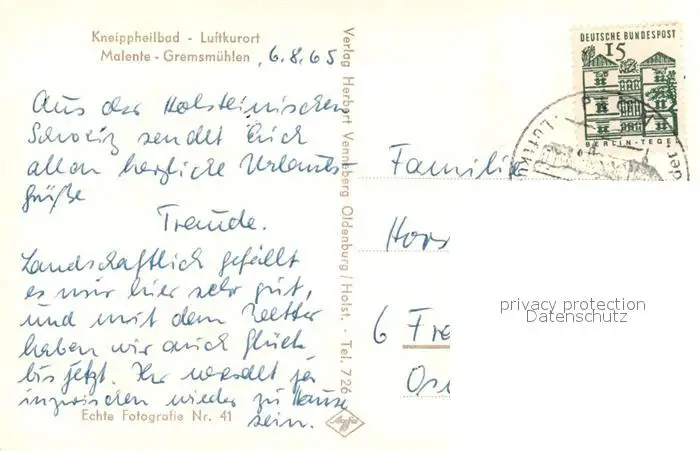 Kneippheilbad - Luftkurort
Malente - Gremsmühlen, 6.8.65
Aus der Holsteinischen
Schweiz sendet Euch
allen herzliche Urlaubs-
grüße
Traude.
Landschaftlich gefällt
es mir hier sehr gut,
und mit dem Wetter
haben wir auch Glück
bis jetzt. Ihr werdet ja
inzwischen wieder zu Hause
sein.
Echte Fotografie Nr. 41
Verlag Herbert Venneberg Oldenburg/Holst. · Tel. 726
Agfa
DEUTSCHE BUNDESPOST
15
BERLIN-TEGEL
Luftku
Familie
Hors
6 Fra
Os
privacy protection
Datenschutz